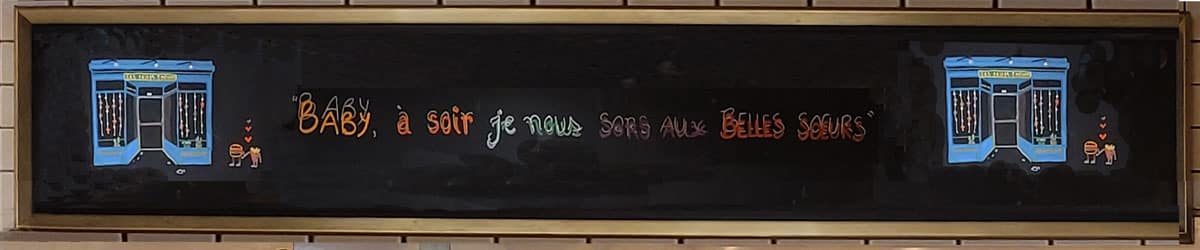 "BABY, à soir je nous SORS AUX BELLES SŒURS"